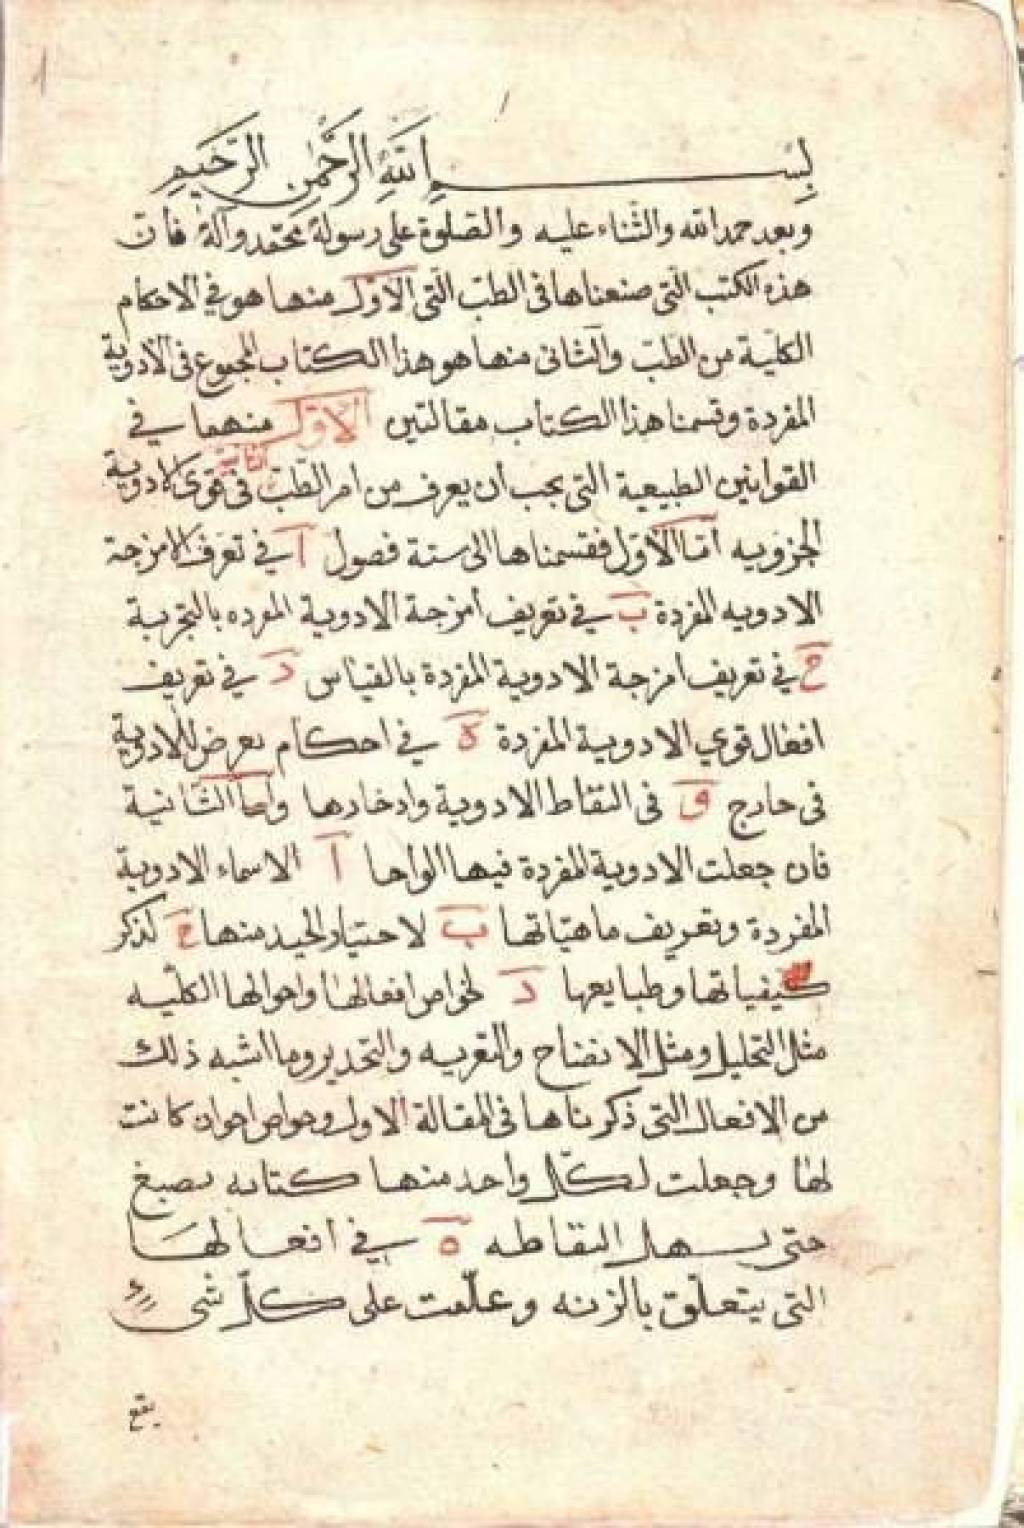 بسم الله الرحمن الرحيم
وبعد حمد الله والثناء عليه والصلوة على رسوله محمد وآله فان
هذه الكتب التى صنعناها فى الطب التى الاول منها هو في الاحكام
الكلية من الطب والثانى منها هو هذا الكتاب المجموع فى الادوية
المفردة وقسمنا هذا الكتاب مقالتين الاول منهما في
القوانين الطبيعية التى يجب أن يعرف من امر الطب الثانية فى قوى الادوية
الجزويه أما الأول فقسمناها الى ستة فصول آ في تعرف الامزجة
الادويه المفردة ب في تعريف أمزجة الادوية المفرده بالتجربة
ج في تعريف امزجة الادوية المفردة بالقياس د في تعريف
افعال قوي الادوية المفردة ه في احكام يعرض للادوية
فى خارج و فى التقاط الادوية وادخارها واما الثانية
فان جعلت الادوية المفردة فيها الواحا آ الاسماء الادوية
المفردة وتعريف ماهياتها ب لاختيار الجيد منها ج لذكر
كيفياتها وطبايعها د لخواص افعالها واحوالها الكليه
مثل التحليل ومثل الانضاج والتغريه والتخدير وما اشبه ذلك
من الافعال التى ذكرناها فى المقالة الاول وخواص اخوان كانت
لها وجعلت لكل واحد منها كتابه بصبغ
حتى يسهل التقاطه ه في افعالها
التى يتعلق بالزنه وعلمت على كل شى
يقع